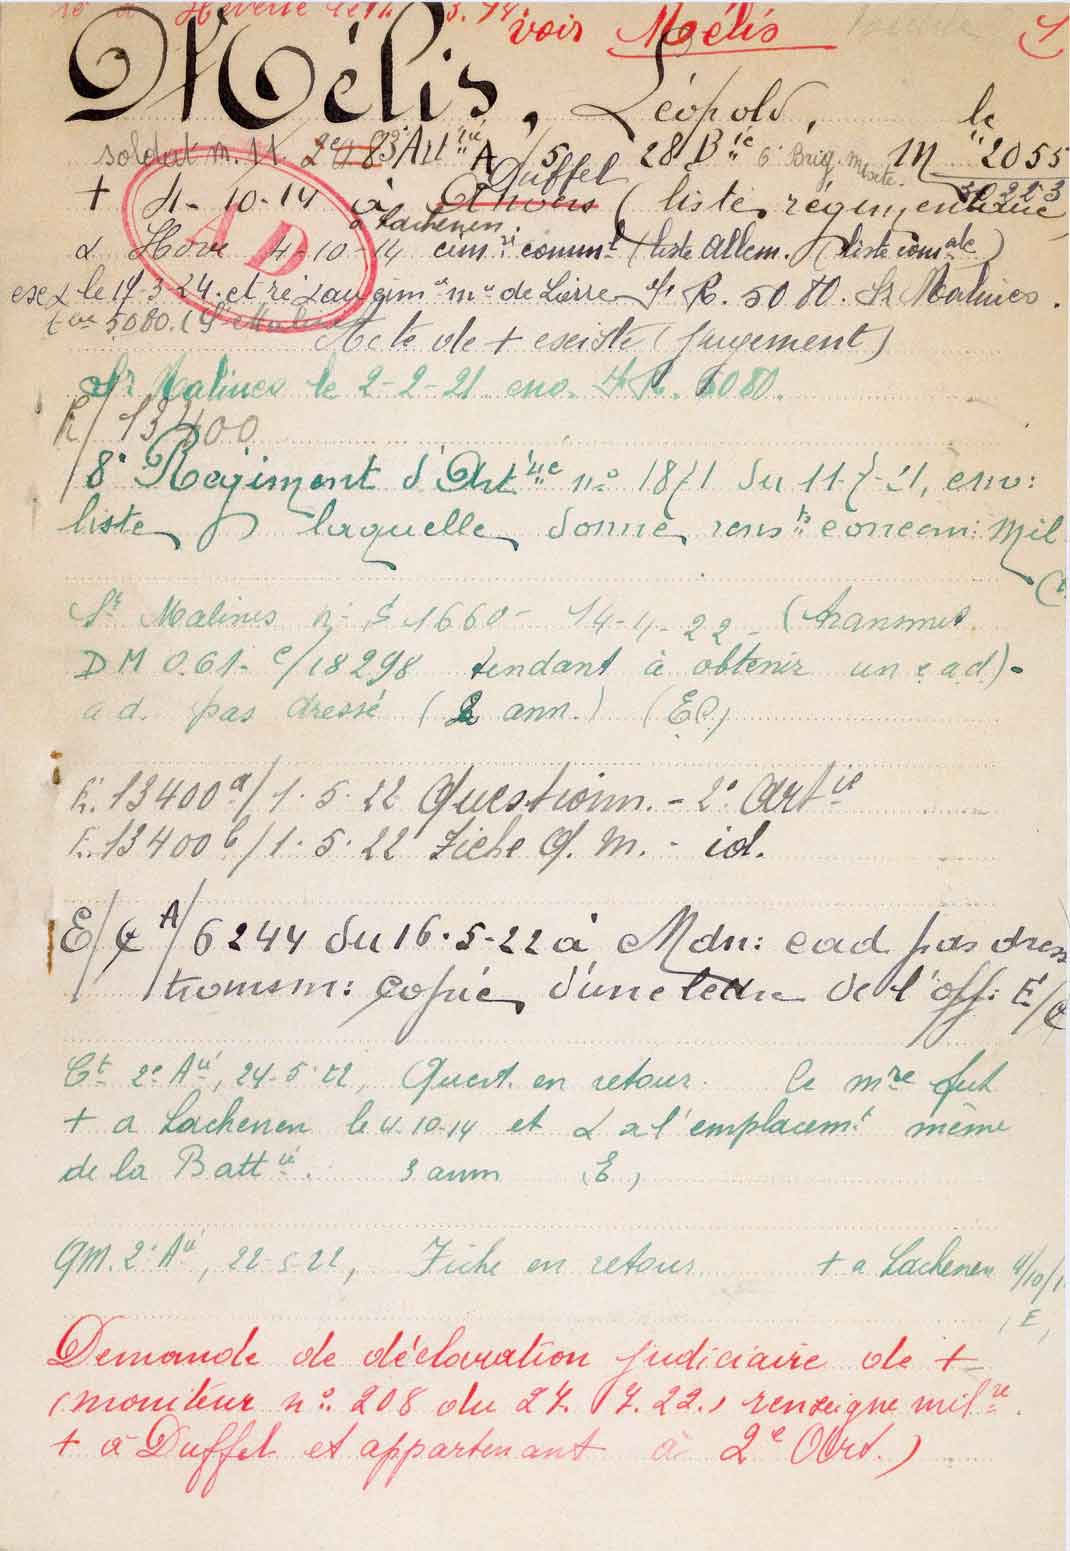 à Héverlé le 14 3. 74. voir Mélis
Mélis, Léopold,
soldat m. 11. 2e 83 Artie A/5 28 Bie 6e Brig. mixte. M le 2055
Duffel 50223
+ 4-10-14 à Anvers (liste régimentaire
à Lachenen
α Hove 4-10-14 cim. comml (liste allem. (liste comale)
ex α le 17-3-24. et ré α au cim re mre de Lierre R. 5080. Sr Malines.
5080. (Sr Malines
Acte de + existe (jugement)
Sr Malines le 2-2-21 env. R. 5080.
E/ 13400
8e Régiment d'Artie no 1871 du 11-7-21, env:
liste laquelle donne rensts concern: Mil
Sr Malines no 1660 14-4-22 - (transmet
DM 061- c/18298 tendant à obtenir un e.a.d) -
a d. pas dressé (2 ann.) (EC)
E. 13400a/ 1.5.22 Questionn. - 2e Artie
E. 13400b/ 1.5.22 Fiche Q. M. - id.
E/C A/6244 du 16.5.22 à Mdn: ead pas dress
transm: copie d'une lettre de l'off: E/C
Ct 2e Aie, 24-5-22, Quest. en retour. Ce mre fut
+ a Lachenen le 4-10-14 et α a l'emplacemt même
de la Battie. 3 ann (E)
QM. 2e Aie, 22-5-22, Fiche en retour + a Lachenen 4/10/1
(E)
Demande de déclaration judiciaire de +
(moniteur no. 208 du 27. 7. 22., renseigne milre.
+ à Duffel et appartenant à 2e Art.)
AD